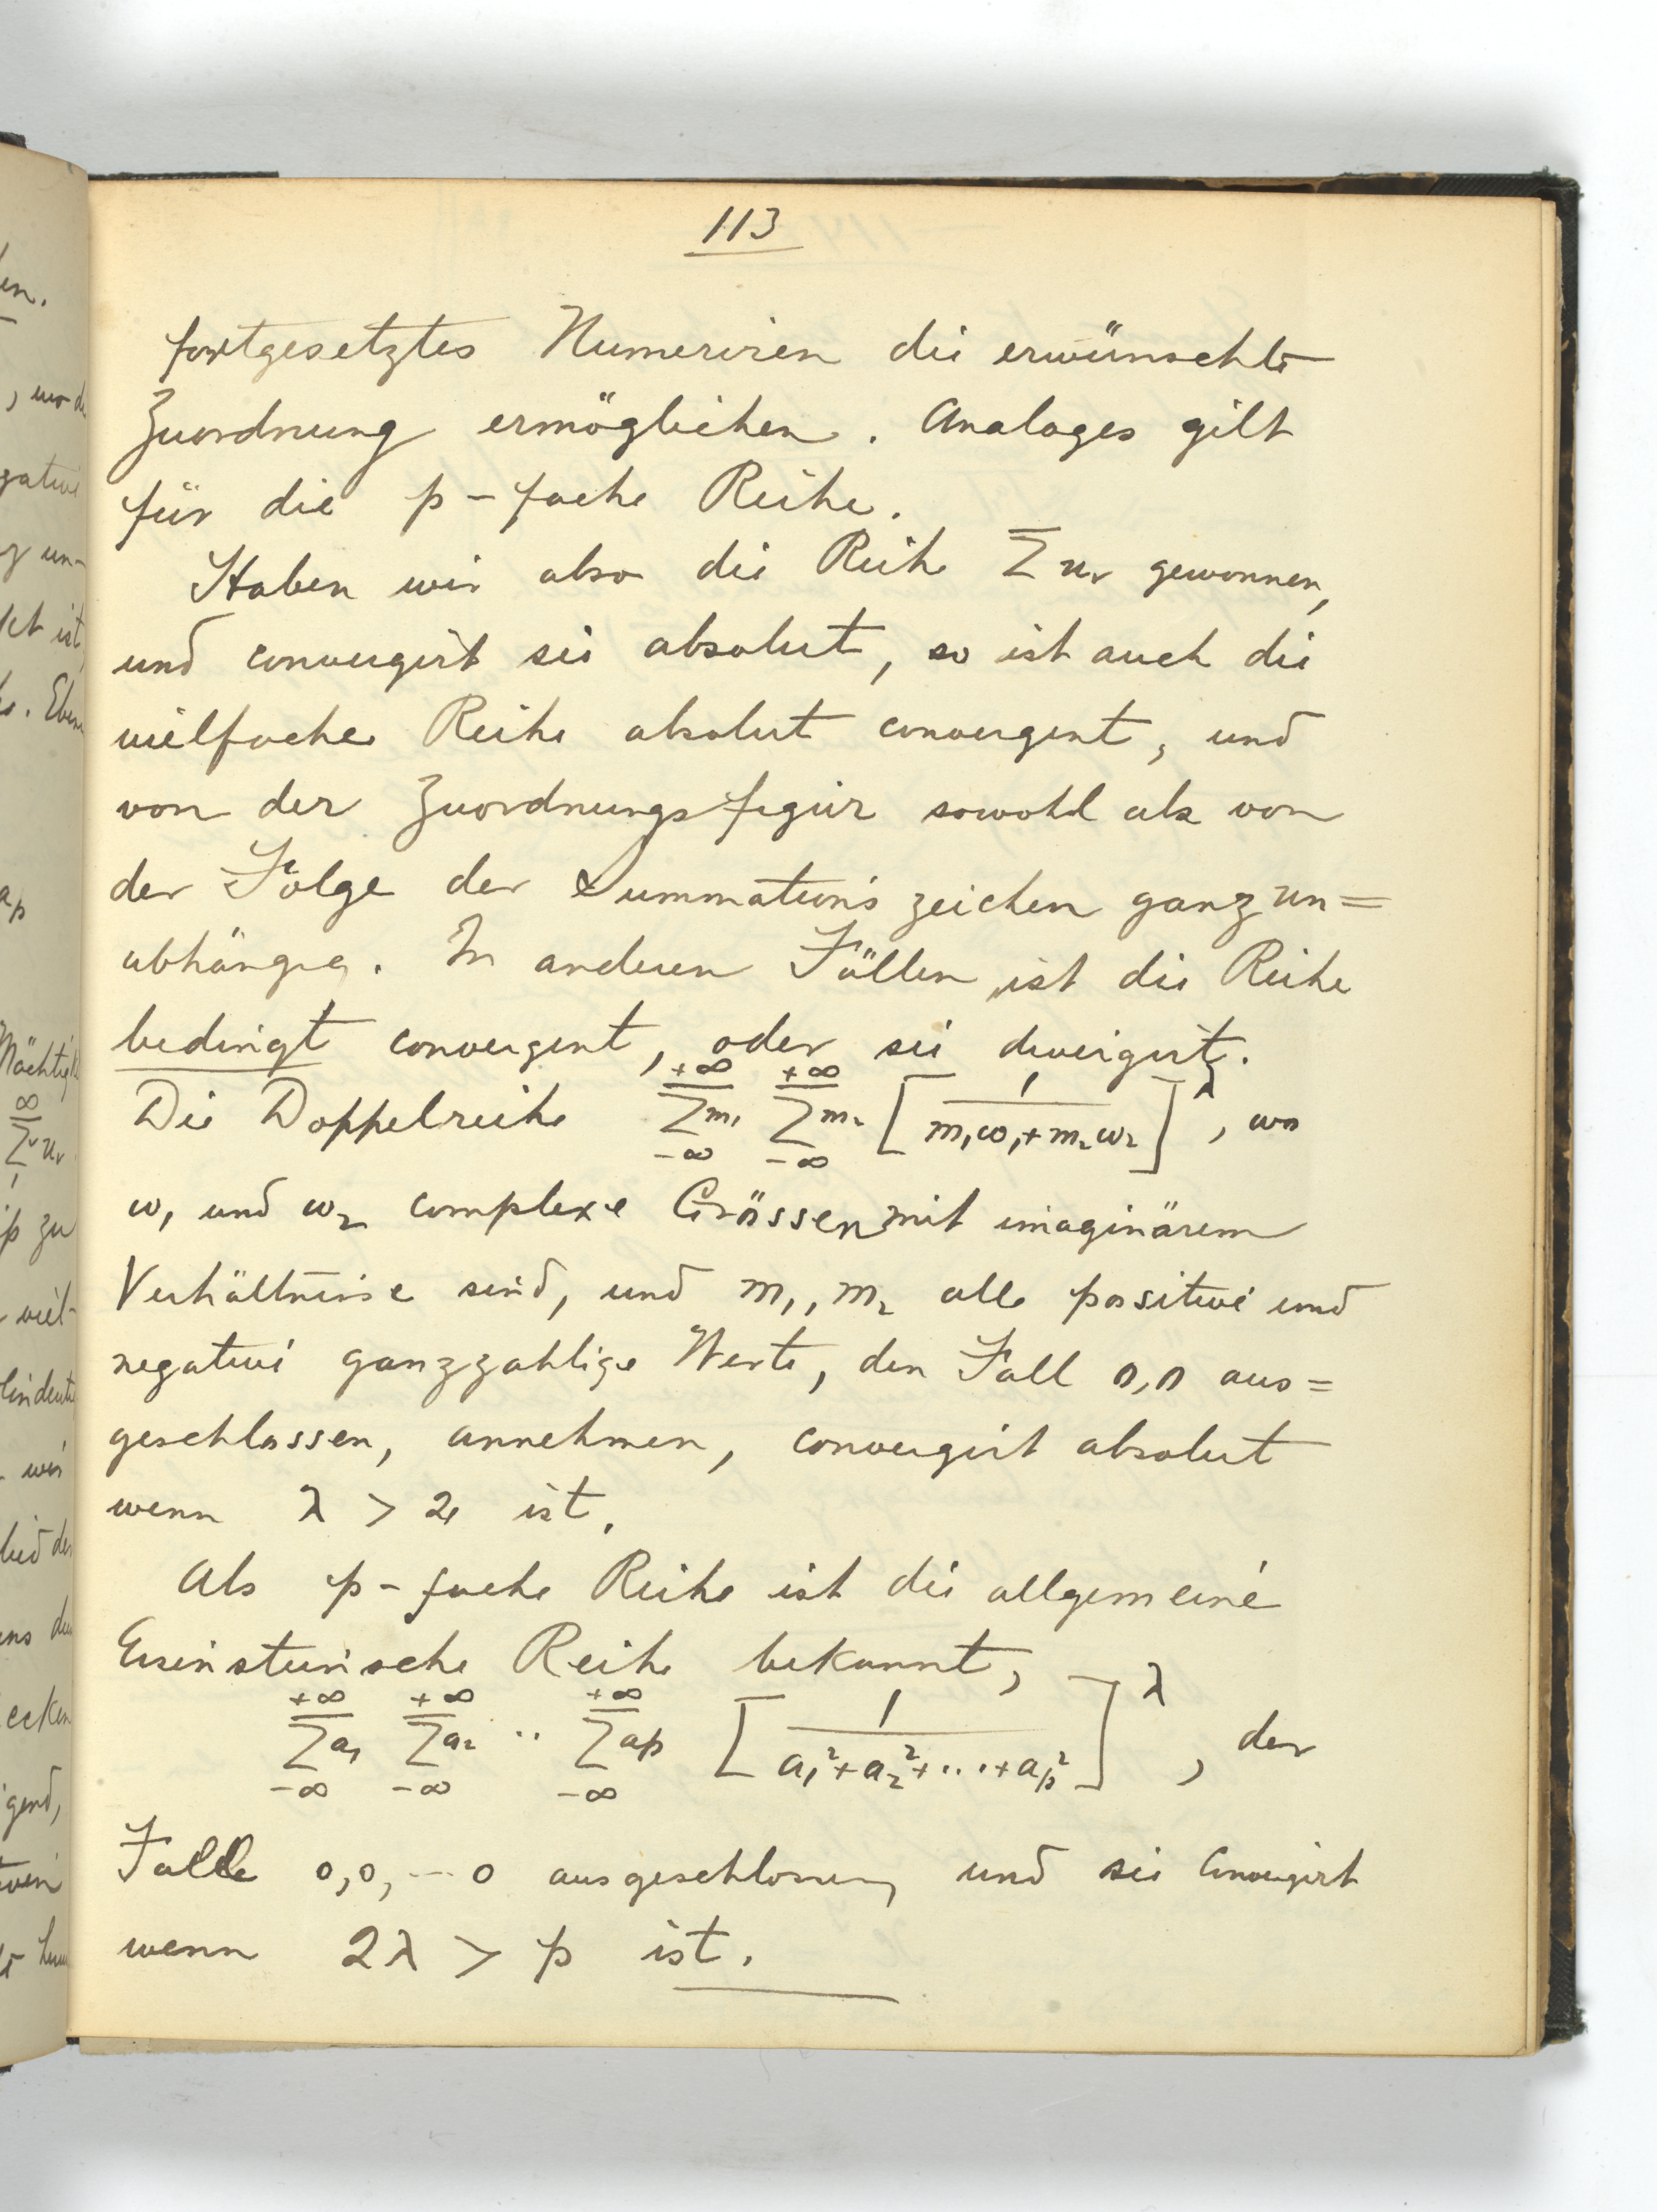 113
fortgesetztes Numeriren die erwünschte
Zuordnung ermöglichen. Analoges gilt
für die p-fache Reihe.
Haben wir also die Reihe Σuᵥ gewonnen,
und convergirt sie absolut, so ist auch die
vielfache Reihe absolut convergent, und
von der Zuordnungsfigur sowohl als von
der Folge der Summationszeichen ganz un=
abhängig. In anderen Fällen ist die Reihe
bedingt convergent, oder sie divergirt.
Die Doppelreihe $\sum_{-\infty}^{+\infty}{}^{m_1} \sum_{-\infty}^{+\infty}{}^{m_2} \left[\frac{1}{m_1\omega_1+m_2\omega_2}\right]^{\lambda}$, wo
ω₁ und ω₂ complexe Grössen mit imaginärem
Verhältnisse sind, und m₁, m₂ alle positive und
negative ganzzahlige Werte, den Fall 0,0 aus=
geschlossen, annehmen, convergirt absolut
wenn λ > 2 ist.
Als p-fache Reihe ist die allgemeine
Eisensteinische Reihe bekannt,
$\sum_{-\infty}^{+\infty}{}^{a_1} \sum_{-\infty}^{+\infty}{}^{a_2} \cdot\cdot \sum_{-\infty}^{+\infty}{}^{a_p} \left[\frac{1}{a_1^2+a_2^2+\cdots+a_p^2}\right]^{\lambda}$, der
Falle 0,0,--0 ausgeschlossen, und sie convergirt
wenn 2λ > p ist.